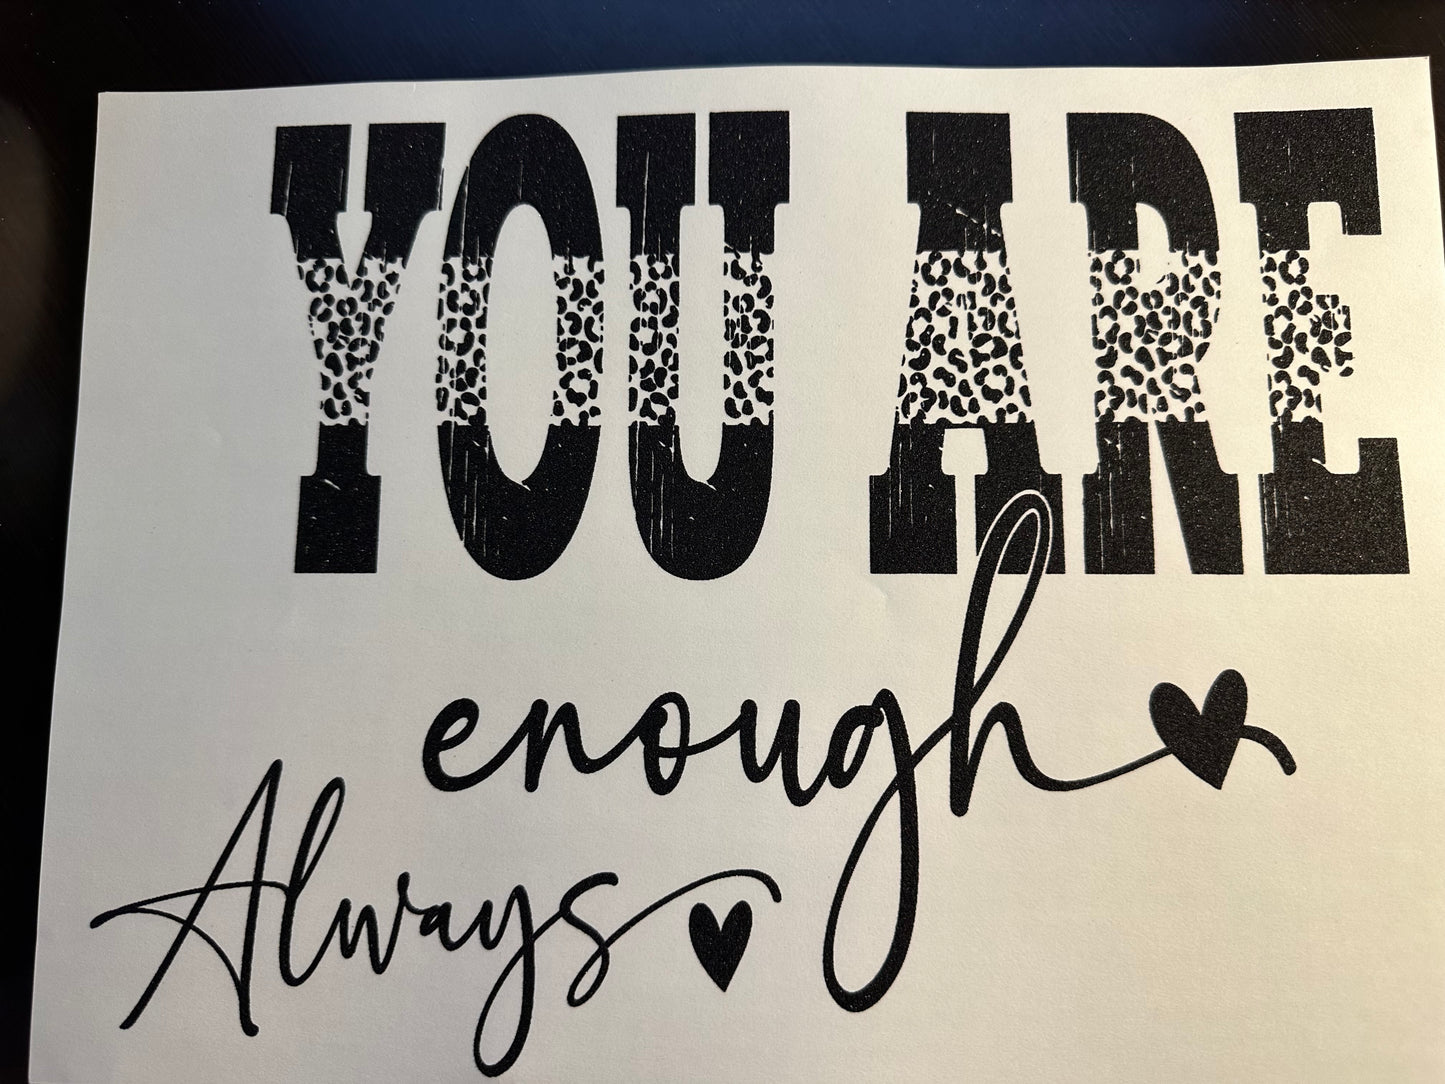 YOU ARE
enough
Always